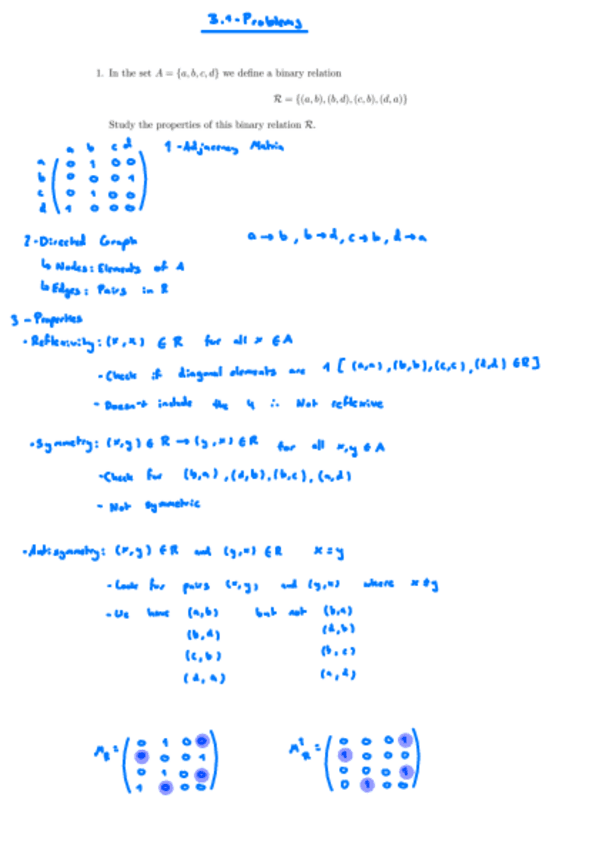 3.1-Problems
1. In the set A = {a, b, c, d} we define a binary relation
R = {(a, b), (b, d), (c, b), (d, a)}
Study the properties of this binary relation R.
1-Adjacency Matrix
a b c d
a 0 1 0 0
b 0 0 0 1
c 0 1 0 0
d 1 0 0 0
2-Directed Graph
a→b, b→d, c→b, d→a
↳ Nodes: Elements of A
↳ Edges: Pairs in R
3-Properties
• Reflexivity: (x,x) ∈ R for all x ∈ A
- Check if diagonal elements are 1 [(a,a),(b,b),(c,c),(d,d) ∈ R]
- Doesn't include the 4 ∴ Not reflexive
• Symmetry: (x,y) ∈ R → (y,x) ∈ R for all x,y ∈ A
- Check for (b,a),(d,b),(b,c),(a,d)
- Not symmetric
• Antisymmetry: (x,y) ∈ R and (y,x) ∈ R x=y
- Look for pairs (x,y) and (y,x) where x≠y
- We have (a,b) but not (b,a)
(b,d) (d,b)
(c,b) (b,c)
(d,a) (a,d)
M_R = 0 1 0 0
0 0 0 1
0 1 0 0
1 0 0 0
M^t_R = 0 0 0 1
1 0 0 0
0 0 0 1
0 1 0 0